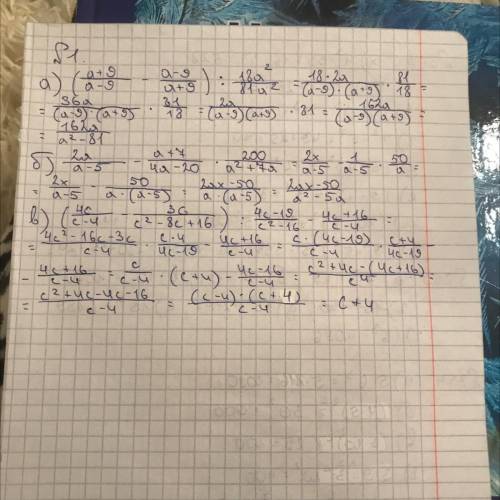 №1.
а) (a+9/a-9 - a-9/a+9) : 18a²/81-a² = 18·2a/(a-9)·(a+9) · 81/18 =
= 36a/(a-9)(a+9) · 81/18 = 2a/(a-9)(a+9) · 81 = 162a/(a-9)(a+9) =
= 162a/a²-81
б) 2a/a-5 - a+7/4a-20 · 200/a²+7a = 2x/a-5 - 1/a-5 · 50/a =
= 2x/a-5 - 50/a·(a-5) = 2ax-50/a·(a-5) = 2ax-50/a²-5a
в) (4c/c-4 - 3c/c²-8c+16) : 4c-19/c²-16 - 4c+16/c-4 =
= 4c²-16c-3c/c-4 · c-4/4c-19 - 4c+16/c-4 = c·(4c-19)/c-4 · c+4/4c-19
- 4c+16/c-4 = c/c-4 · (c+4) - 4c-16/c-4 = c²+4c-(4c+16)/c-4 =
= c²+4c-4c-16/c-4 = (c-4)·(c+4)/c-4 = c+4